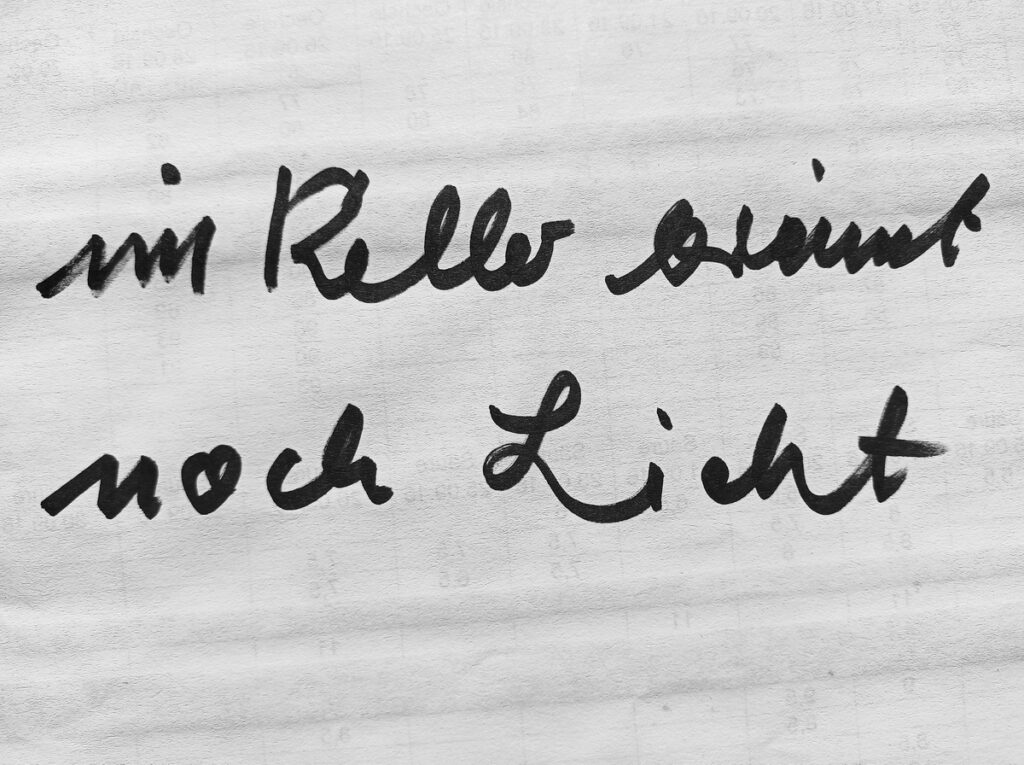 im Keller brennt
noch Licht